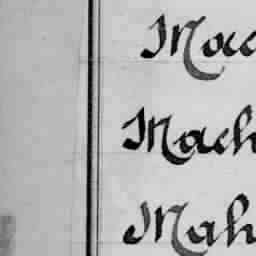 Mac
Mach
Mah